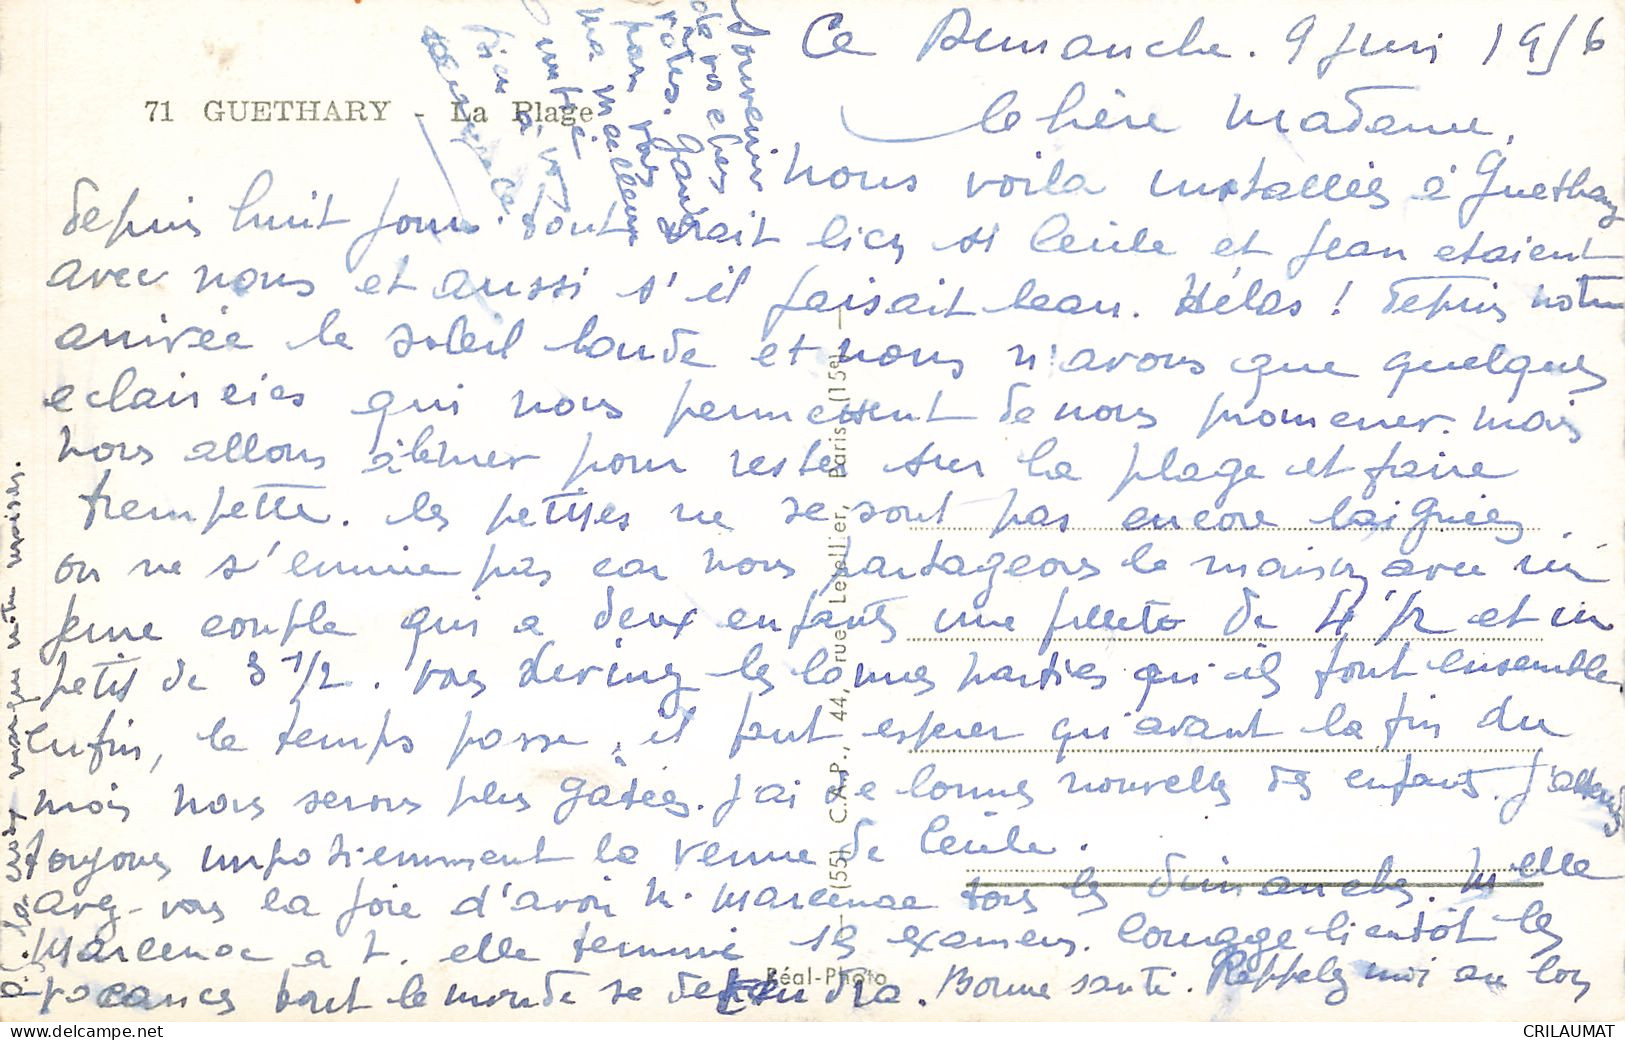 71 GUETHARY - La Plage
Ce Dimanche. 9 Juin 1956
Chère Madame,
nous voila installées à Guethary
depuis huit jours. tout irait bien si Cécile et Jean etaient
avec nous et aussi s'il faisait beau. Hélas ! depuis notre
arrivée le soleil boude et nous n'avons que quelques
eclaircies qui nous permettent de nous promener. mais
nous allons pour rester sur la plage et faire
trempette. les petites ne se sont pas encore baignées
on ne s'ennuie pas car nous partageons la maison avec un
jeune couple qui a deux enfants une fillette de 4 1/2 et un
petit de 3 1/2. vous devinez les bonnes parties qu'ils font ensemble.
Enfin, le temps passe, il faut esperer qu'avant la fin du
mois nous serons plus gâtées. J'ai de bonnes nouvelles des enfants. J'attends
toujours impatiemment la venue de Cécile.
avez-vous la joie d'avoir M. Marcenac tous les dimanches. Melle
Marcenac a t. elle terminé ses examens. Courage bientôt les
vacances tout le monde se detendra. Bonne santé. Rappelez moi au bon
souvenir
de vos chers
votes.
pour vous
ma meilleure
amitié
bien à vous
P.S. la croix marque notre maison.
Réal-Photo
(55) C.A.P., 44, rue Letellier, Paris (15e)
CRILAUMAT